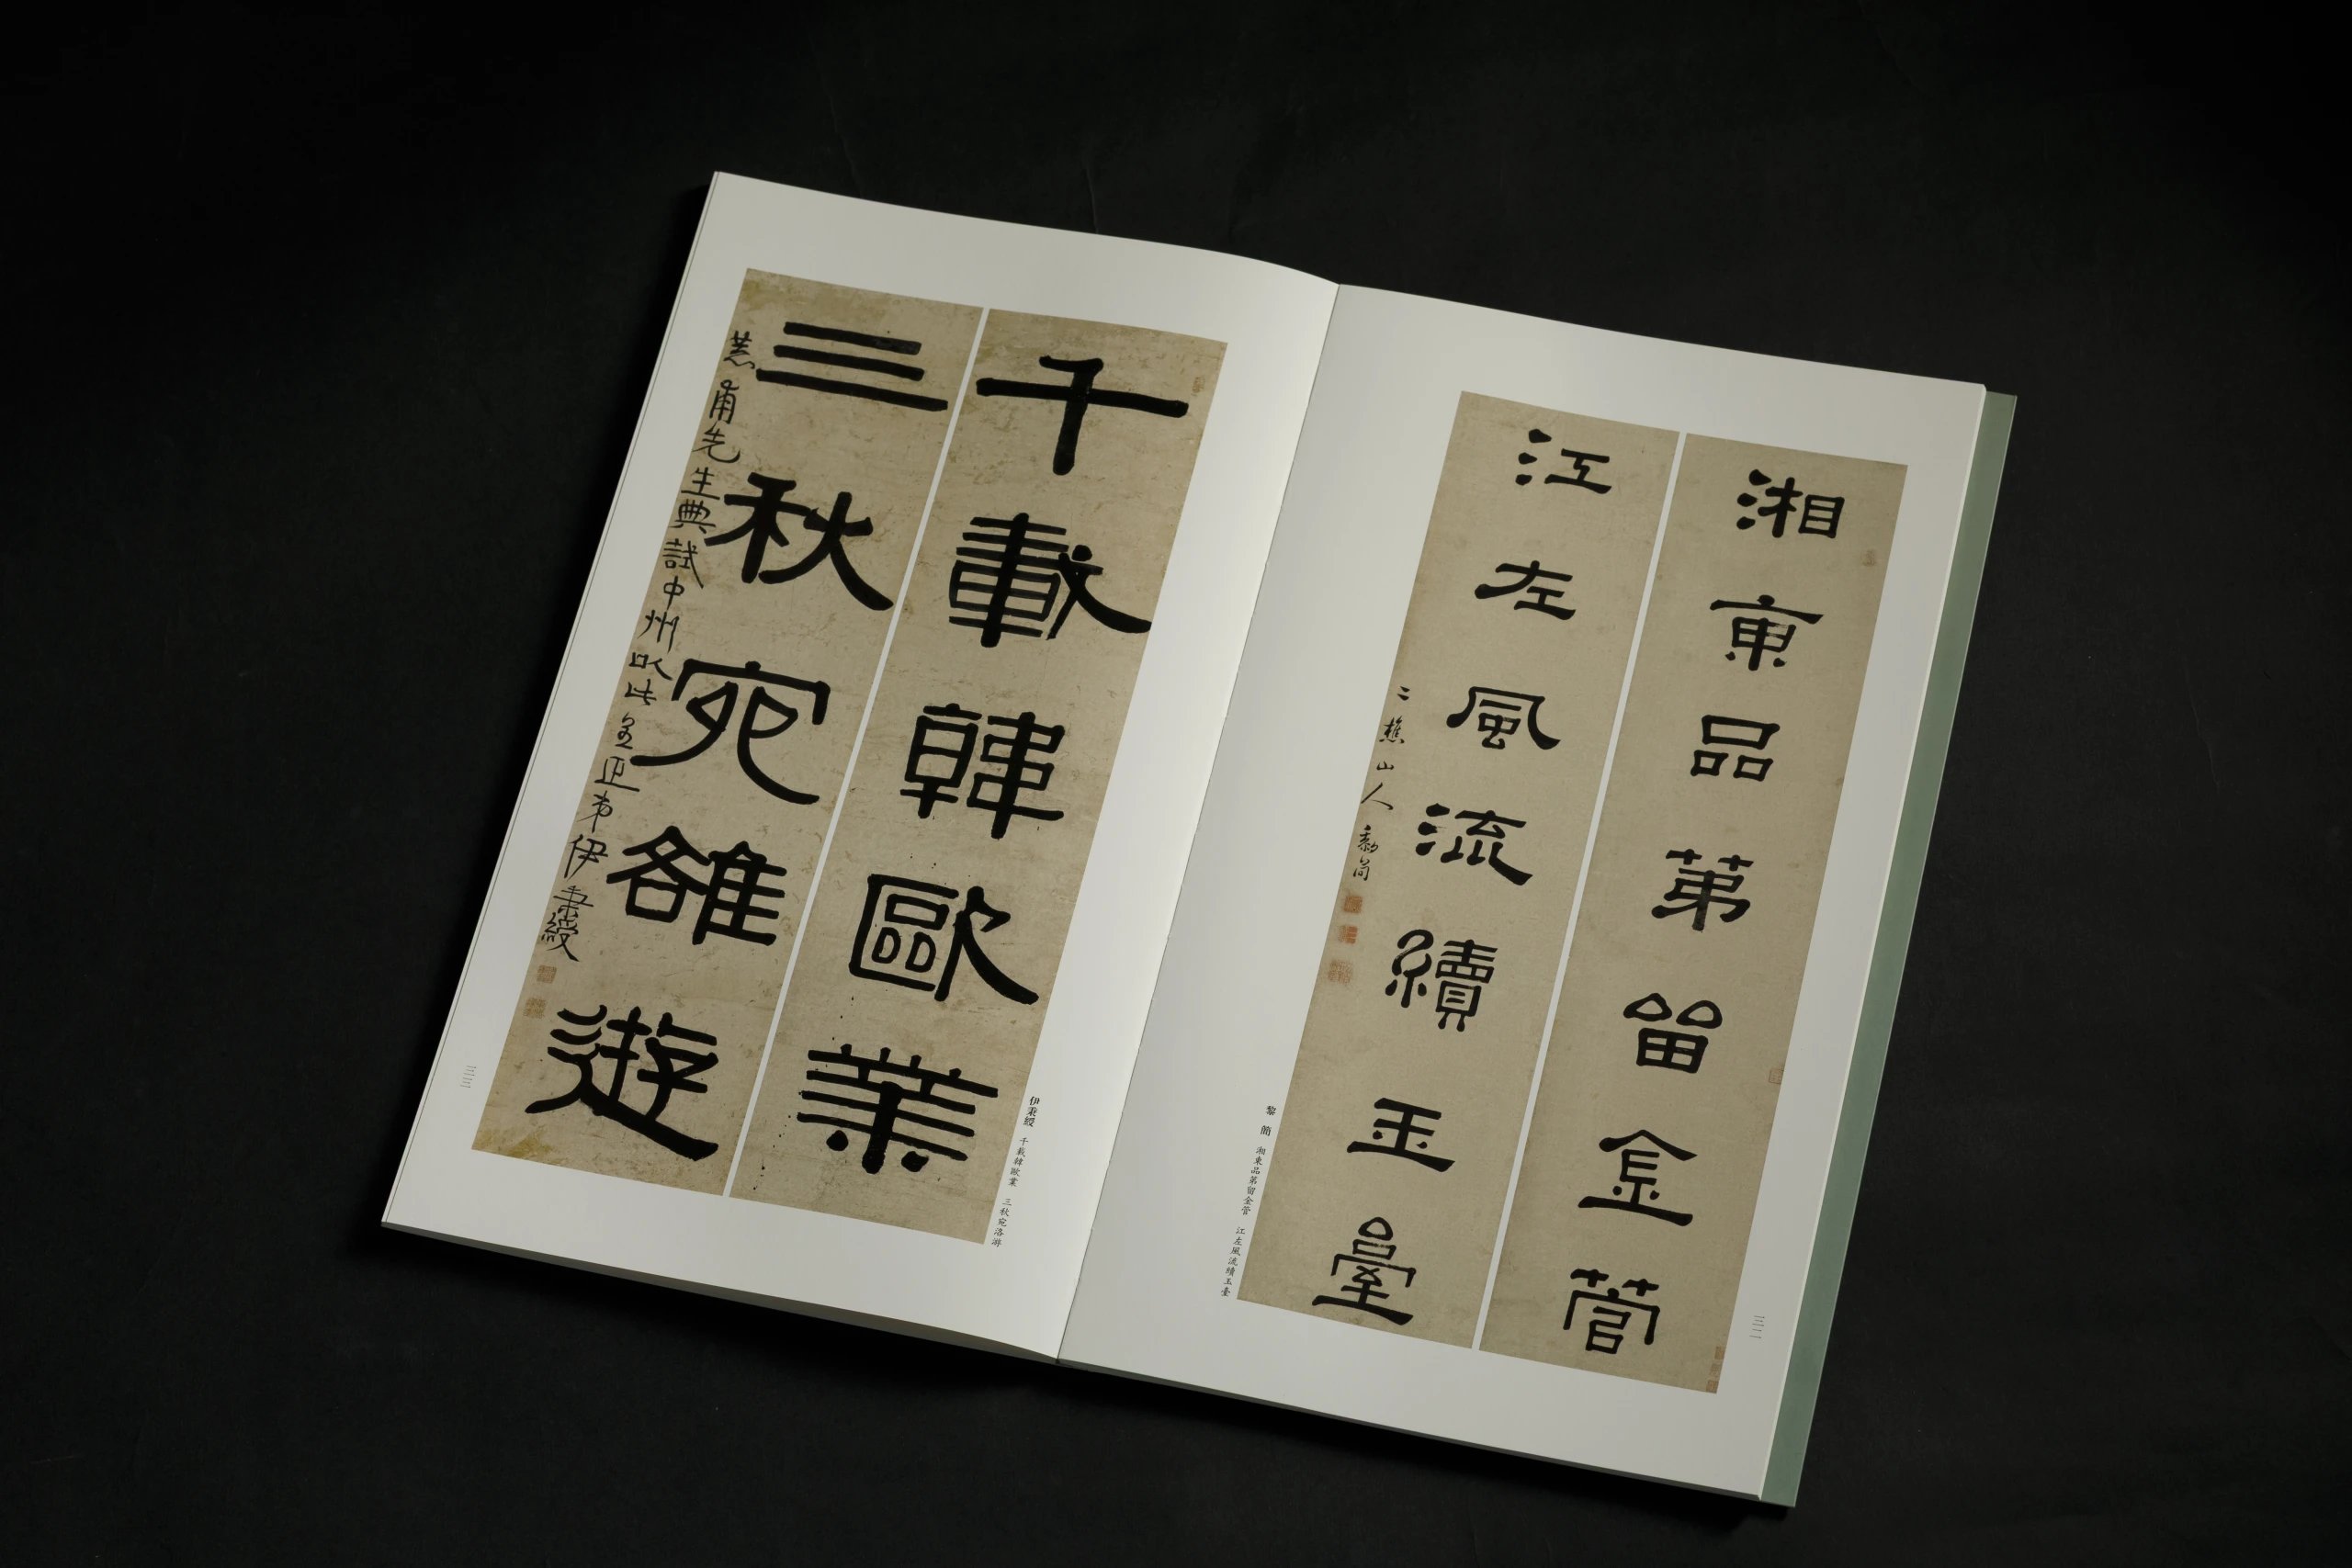 湘東品苐留金管
江左風流續玉臺
二樵山人黎簡
黎簡 湘東品第留金管 江左風流續玉臺
三二
千載韓歐業
三秋宛雒遊
甫先生典試中州以此正弟伊秉綬
伊秉綬 千載韓歐業 三秋宛洛游
三三